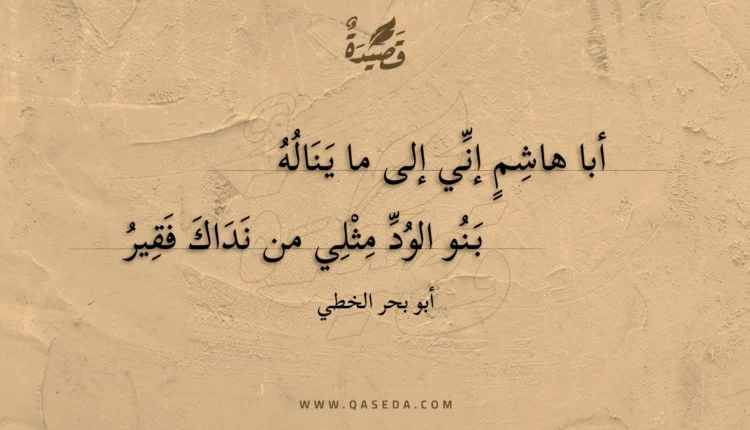 قَصِيدَةٌ
أبا هاشِمٍ إنِّي إلى ما يَنَالُهُ
بَنُو الوُدِّ مِثْلِي من نَدَاكَ فَقِيرُ
أبو بحر الخطي
WWW.QASEDA.COM